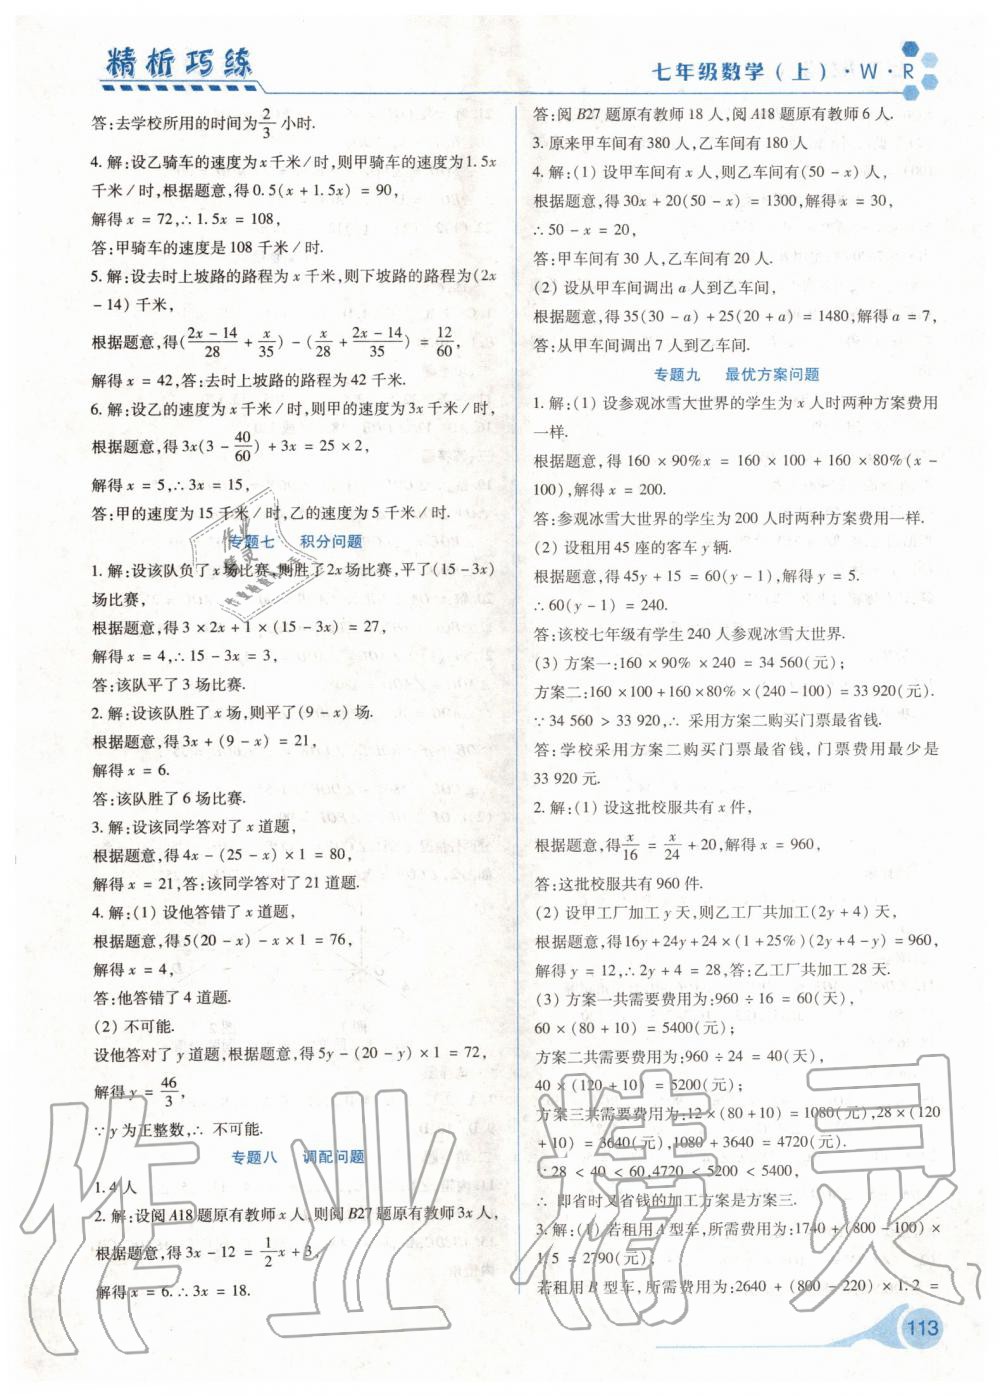 精析巧练
七年级数学(上)·W·R
答:去学校所用的时间为2/3小时.
4. 解:设乙骑车的速度为x千米/时,则甲骑车的速度为1.5x
千米/时,根据题意,得0.5(x+1.5x)=90,
解得x=72,∴1.5x=108,
答:甲骑车的速度是108千米/时.
5. 解:设去时上坡路的路程为x千米,则下坡路的路程为(2x
-14)千米,
根据题意,得((2x-14)/28+x/35)-(x/28+(2x-14)/35)=12/60,
解得x=42,答:去时上坡路的路程为42千米.
6. 解:设乙的速度为x千米/时,则甲的速度为3x千米/时,
根据题意,得3x(3-40/60)+3x=25×2,
解得x=5,∴3x=15,
答:甲的速度为15千米/时,乙的速度为5千米/时.
专题七 积分问题
1. 解:设该队负了x场比赛,则胜了2x场比赛,平了(15-3x)
场比赛,
根据题意,得3×2x+1×(15-3x)=27,
解得x=4,∴15-3x=3,
答:该队平了3场比赛.
2. 解:设该队胜了x场,则平了(9-x)场.
根据题意,得3x+(9-x)=21,
解得x=6.
答:该队胜了6场比赛.
3. 解:设该同学答对了x道题,
根据题意,得4x-(25-x)×1=80,
解得x=21,答:该同学答对了21道题.
4. 解:(1) 设他答错了x道题,
根据题意,得5(20-x)-x×1=76,
解得x=4,
答:他答错了4道题.
(2) 不可能.
设他答对了y道题,根据题意,得5y-(20-y)×1=72,
解得y=46/3,
∵y为正整数,∴不可能.
专题八 调配问题
1. 4人
2. 解:设阅A18题原有教师x人,则阅B27题原有教师3x人,
根据题意,得3x-12=1/2x+3,
解得x=6.∴3x=18.
答:阅B27题原有教师18人,阅A18题原有教师6人.
3. 原来甲车间有380人,乙车间有180人
4. 解:(1) 设甲车间有x人,则乙车间有(50-x)人,
根据题意,得30x+20(50-x)=1300,解得x=30,
∴50-x=20,
答:甲车间有30人,乙车间有20人.
(2) 设从甲车间调出a人到乙车间,
根据题意,得35(30-a)+25(20+a)=1480,解得a=7,
答:从甲车间调出7人到乙车间.
专题九 最优方案问题
1. 解:(1) 设参观冰雪大世界的学生为x人时两种方案费用
一样.
根据题意,得160×90%x=160×100+160×80%(x-
100),解得x=200.
答:参观冰雪大世界的学生为200人时两种方案费用一样.
(2) 设租用45座的客车y辆.
根据题意,得45y+15=60(y-1),解得y=5.
∴60(y-1)=240.
答:该校七年级有学生240人参观冰雪大世界.
(3) 方案一:160×90%×240=34 560(元);
方案二:160×100+160×80%×(240-100)=33 920(元).
∵34 560>33 920,∴采用方案二购买门票最省钱.
答:学校采用方案二购买门票最省钱,门票费用最少是
33 920元.
2. 解:(1) 设这批校服共有x件,
根据题意,得x/16=x/24+20,解得x=960,
答:这批校服共有960件.
(2) 设甲工厂加工y天,则乙工厂共加工(2y+4)天,
根据题意,得16y+24y+24×(1+25%)(2y+4-y)=960,
解得y=12,∴2y+4=28,答:乙工厂共加工28天.
(3) 方案一共需要费用为:960÷16=60(天),
60×(80+10)=5400(元);
方案二共需要费用为:960÷24=40(天),
40×(120+10)=5200(元);
方案三共需要费用为:12×(80+10)=1080(元),28×(120
+10)=3640(元),1080+3640=4720(元).
∵28<40<60,4720<5200<5400,
∴即省时又省钱的加工方案是方案三.
3. 解:(1) 若租用A型车,所需费用为:1740+(800-100)×
1.5=2790(元);
若租用B型车,所需费用为:2640+(800-220)×1.2=
113
作业精灵